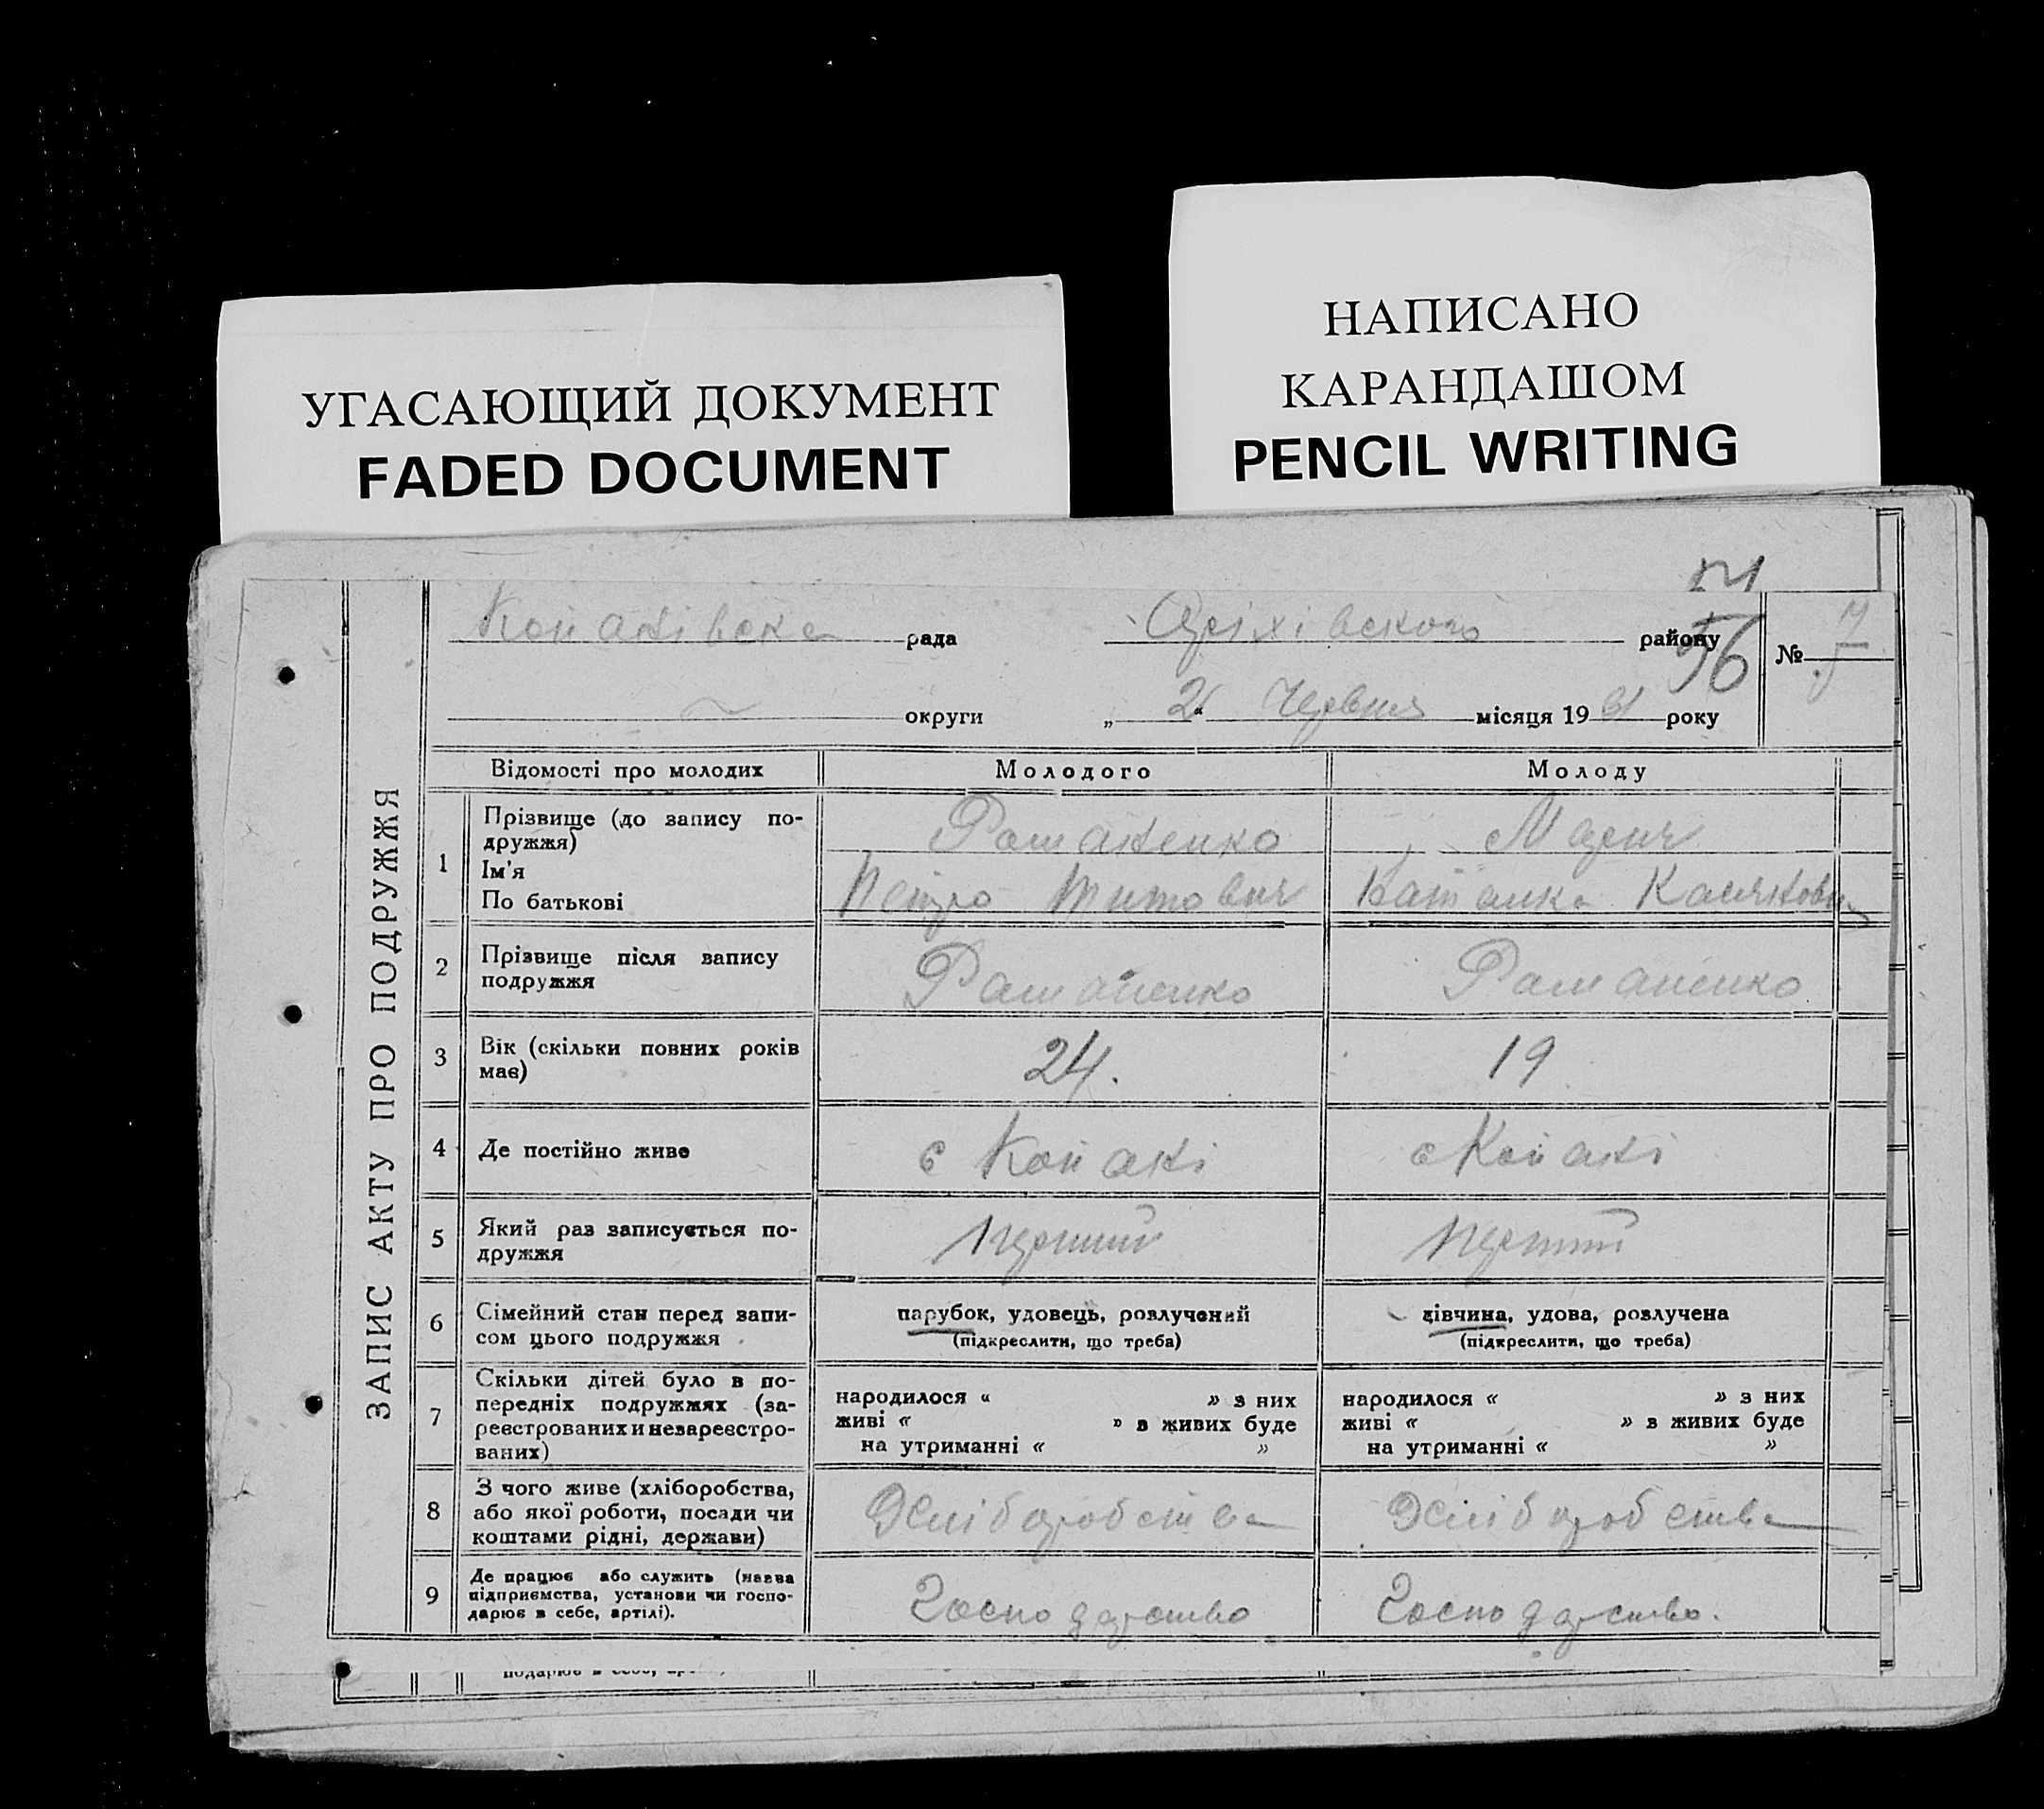 УГАСАЮЩИЙ ДОКУМЕНТ
FADED DOCUMENT
НАПИСАНО
КАРАНДАШОМ
PENCIL WRITING
ЗАПИС АКТУ ПРО ПОДРУЖЖЯ
54
Копанівска рада Оріхівского району 56 № 7
округи „ 2 “ Червня місяця 1931 року
Відомості про молодих Молодого Молоду
1 Прізвище (до запису по-
дружжя)
Ім'я
По батькові
Романенко
Петро Титович
2 Прізвище після запису
подружжя
Раманенко Раманенко
3 Вік (скільки повних років
має)
24. 19
4 Де постійно живе с Копані с Копані
5 Який раз записується по-
дружжя
перший перший
6 Сімейний стан перед запи-
сом цього подружжя
парубок, удовець, розлучений
(підкреслити, що треба)
дівчина, удова, розлучена
(підкреслити, що треба)
7 Скільки дітей було в по-
передніх подружжях (за-
реєстрованих и незареєстро-
ваних)
народилося “ ” з них
живі “ ” з живих буде
на утриманні “ ”
народилося “ ” з них
живі “ ” з живих буде
на утриманні “ ”
8 З чого живе (хліборобства,
або якої роботи, посади чи
коштами рідні, держави)
Хліборобства Хліборобства
9 Де працює або служить (назва
підприємства, установи чи госпо-
дарює в себе, артілі).
Господарство Господарство.